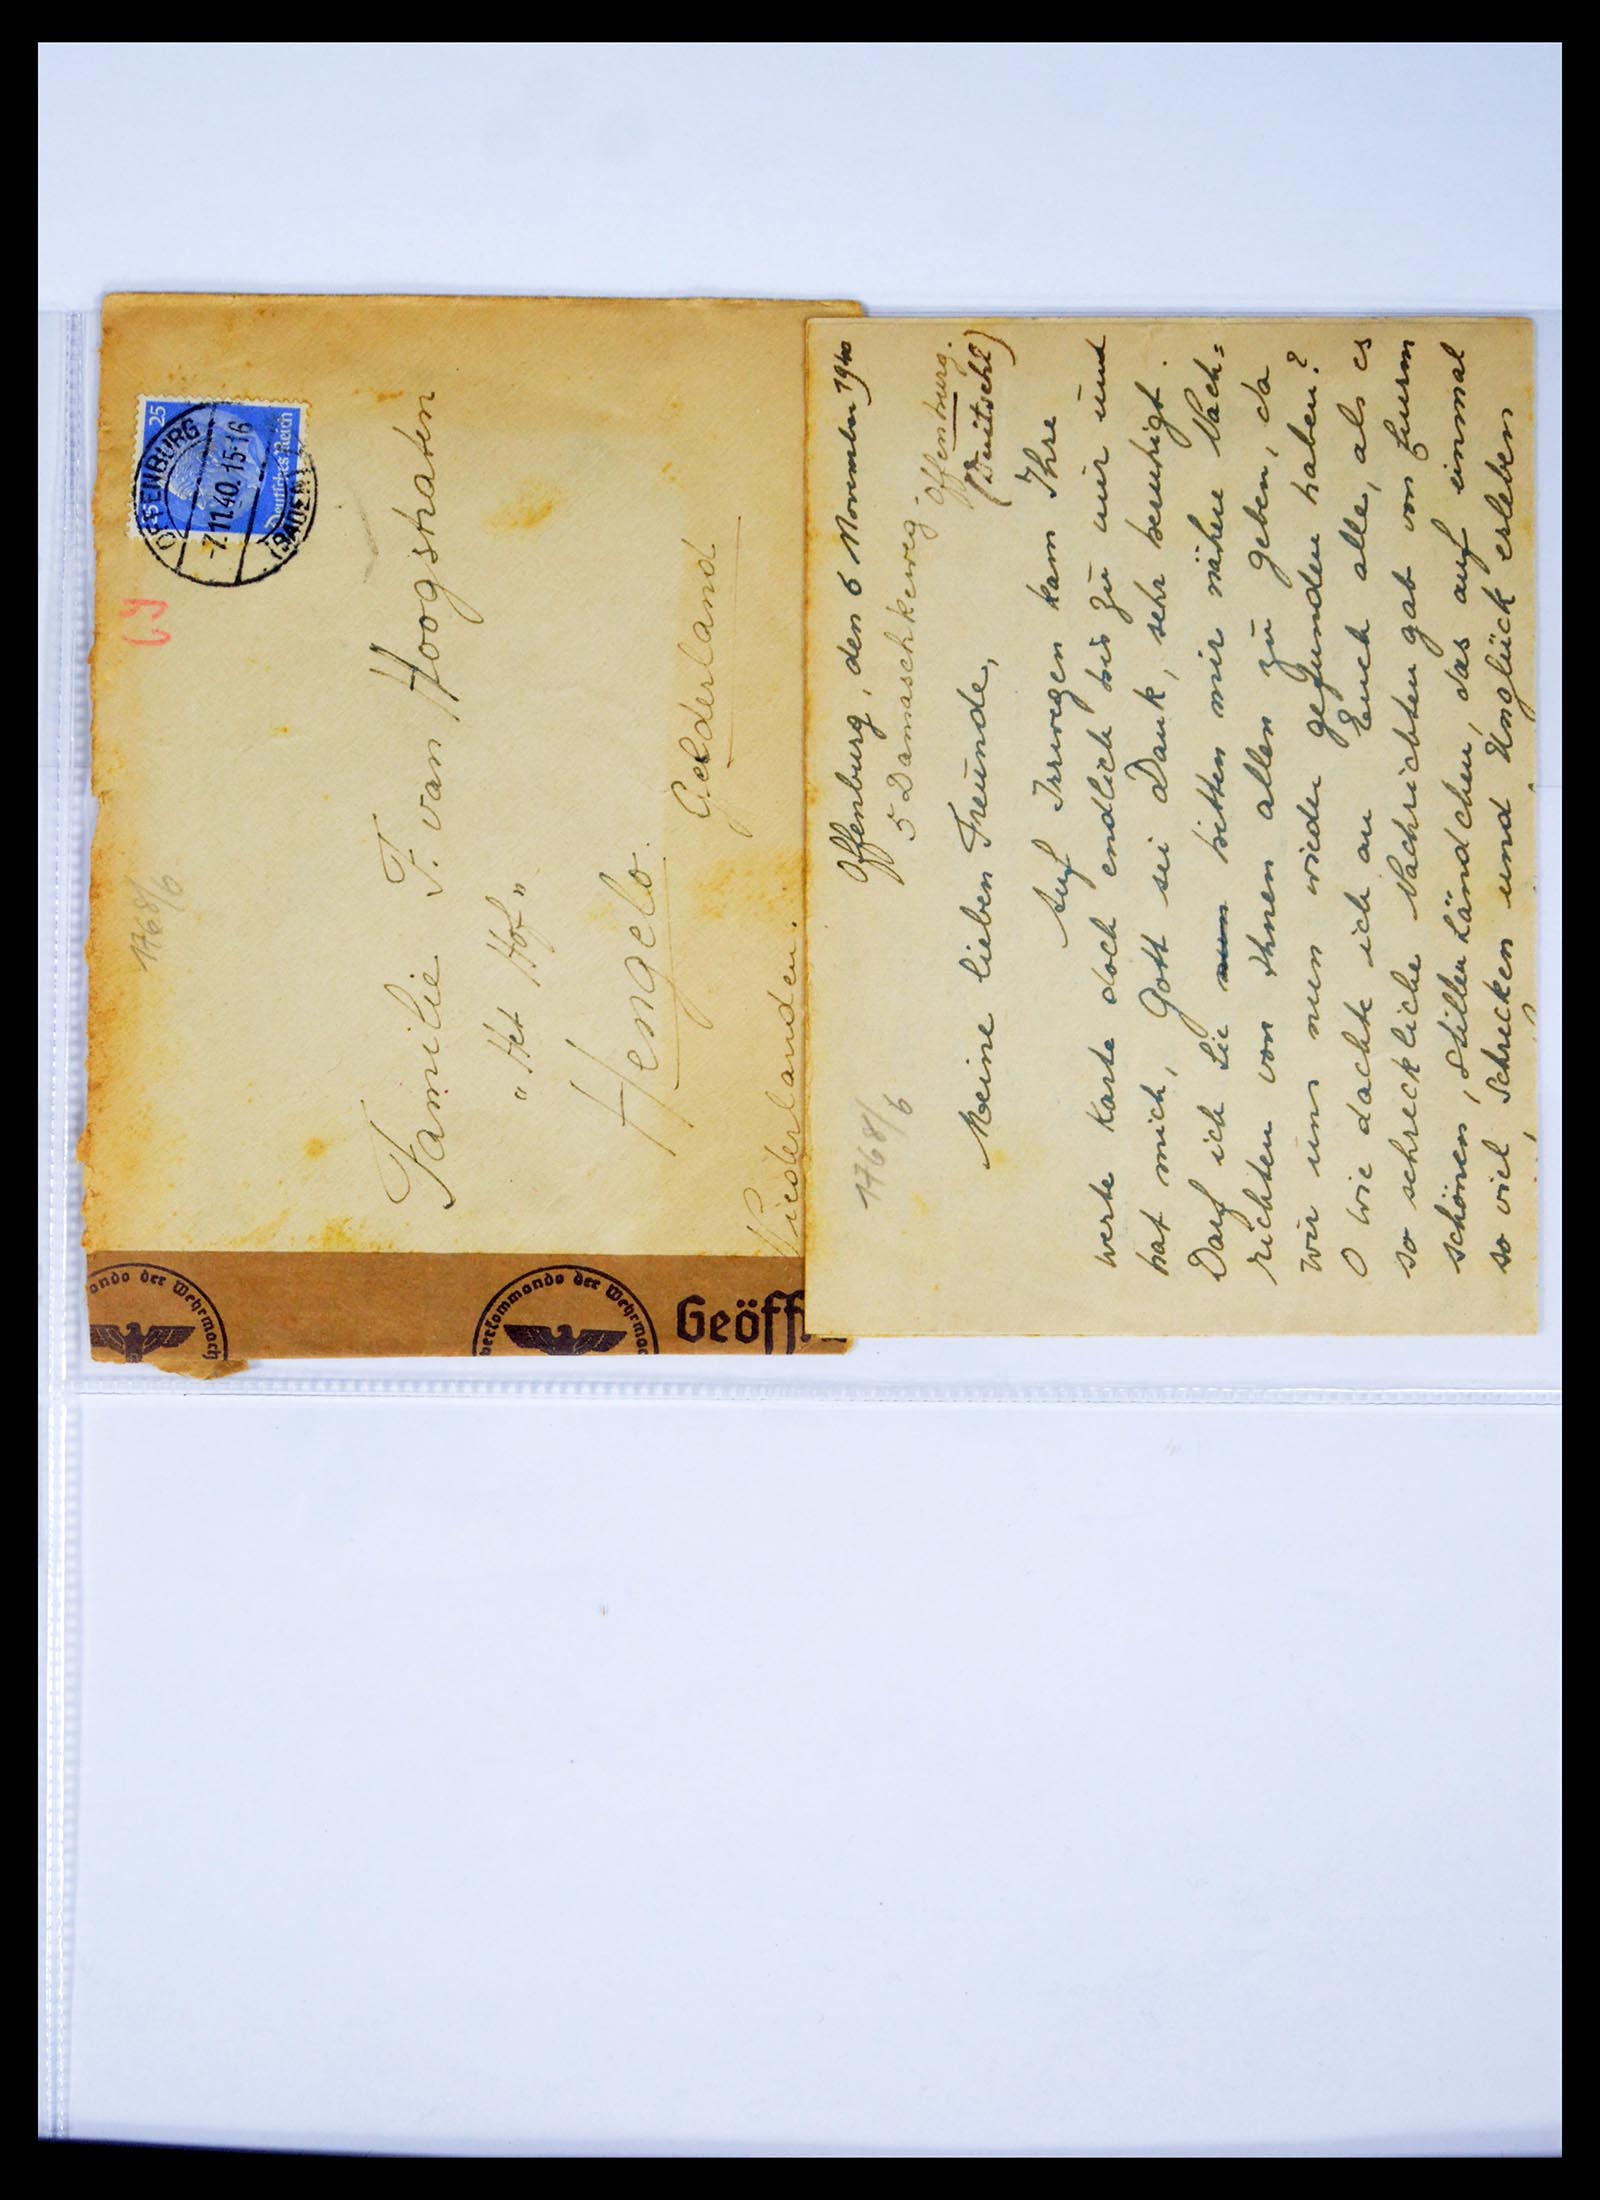 25
Deutsches Reich
OFFENBURG
-7.11.40.15-16
(BADEN)
1768/6
Familie F. van Hoogstraten
"Het Hof"
Hengelo.
Gelderland
Niederlanden.
ando der Wehrmach
berkommando der Wehrmac
Geöff
1768/6
Offenburg, den 6 November 1940
5 Damaschkeweg.
Offenburg.
(Deutschl)
Meine lieben Freunde,
Auf Irrwegen kam Ihre
werte Karte doch endlich bis zu mir und
hat mich, Gott sei Dank, sehr beruhigt.
Darf ich Sie nun bitten mir nähere Nach=
richten von Ihnen allen zu geben, da
wir uns nun wieder gefunden haben?
O wie dachte ich an Euch alle, als es
so schreckliche Nachrichten gab von Eurem
schönen, stillen Ländchen, das auf einmal
so viel Schrecken und Unglück erleben